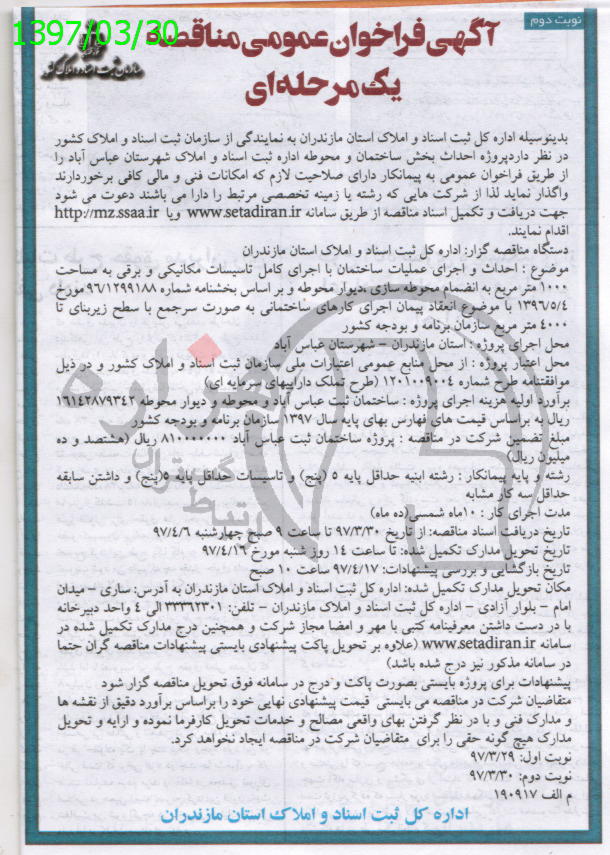 1397/03/30
نوبت دوم
آگهی فراخوان عمومی مناقصه
یک مرحله‌ای
سازمان ثبت اسناد و املاک کشور
بدینوسیله اداره کل ثبت اسناد و املاک استان مازندران به نمایندگی از سازمان ثبت اسناد و املاک کشور
در نظر داردپروژه احداث بخش ساختمان و محوطه اداره ثبت اسناد و املاک شهرستان عباس آباد را
از طریق فراخوان عمومی به پیمانکار دارای صلاحیت لازم که امکانات فنی و مالی کافی برخوردارند
واگذار نماید لذا از شرکت هایی که رشته یا زمینه تخصصی مرتبط را دارا می باشند دعوت می شود
جهت دریافت و تکمیل اسناد مناقصه از طریق سامانه www.setadiran.ir ویا http://mz.ssaa.ir
اقدام نمایند.
دستگاه مناقصه گزار: اداره کل ثبت اسناد و املاک استان مازندران
موضوع : احداث و اجرای عملیات ساختمان با اجرای کامل تاسیسات مکانیکی و برقی به مساحت
۱۰۰۰ متر مربع به انضمام محوطه سازی ،دیوار محوطه و بر اساس بخشنامه شماره ۹۶/۱۲۹۹۱۸۸ مورخ
۱۳۹۶/۵/۴ با موضوع انعقاد پیمان اجرای کارهای ساختمانی به صورت سرجمع با سطح زیربنای تا
۴۰۰۰ متر مربع سازمان برنامه و بودجه کشور
محل اجرای پروژه : استان مازندران - شهرستان عباس آباد
محل اعتبار پروژه : از محل منابع عمومی اعتبارات ملی سازمان ثبت اسناد و املاک کشور و در ذیل
موافقتنامه طرح شماره ۱۲۰۱۰۰۹۰۰۴ (طرح تملک داراییهای سرمایه ای)
برآورد اولیه هزینه اجرای پروژه : ساختمان ثبت عباس آباد و محوطه و دیوار محوطه ۱۶۱۴۲۸۷۹۳۴۲
ریال به براساس قیمت های فهارس بهای پایه سال ۱۳۹۷ سازمان برنامه و بودجه کشور
مبلغ تضمین شرکت در مناقصه : پروژه ساختمان ثبت عباس آباد ۸۱۰۰۰۰۰۰۰ ریال (هشتصد و ده
میلیون ریال)
رشته و پایه پیمانکار : رشته ابنیه حداقل پایه ۵ (پنج) و تاسیسات حداقل پایه ۵(پنج) و داشتن سابقه
حداقل سه کار مشابه
مدت اجرای کار : ۱۰ماه شمسی(ده ماه)
تاریخ دریافت اسناد مناقصه: از تاریخ ۹۷/۳/۳۰ تا ساعت ۹ صبح چهارشنبه ۹۷/۴/۶
تاریخ تحویل مدارک تکمیل شده: تا ساعت ۱۴ روز شنبه مورخ ۹۷/۴/۱۶
تاریخ بازگشایی و بررسی پیشنهادات: ۹۷/۴/۱۷ ساعت ۱۰ صبح
مکان تحویل مدارک تکمیل شده: اداره کل ثبت اسناد و املاک استان مازندران به آدرس: ساری - میدان
امام - بلوار آزادی - اداره کل ثبت اسناد و املاک مازندران - تلفن: ۳۳۳۶۲۳۰۱ الی ۴ واحد دبیرخانه
با در دست داشتن معرفینامه کتبی با مهر و امضا مجاز شرکت و همچنین درج مدارک تکمیل شده در
سامانه www.setadiran.ir (علاوه بر تحویل پاکت پیشنهادی بایستی پیشنهادات مناقصه گران حتما
در سامانه مذکور نیز درج شده باشد)
پیشنهادات برای پروژه بایستی بصورت پاکت و درج در سامانه فوق تحویل مناقصه گزار شود
متقاضیان شرکت در مناقصه می بایستی قیمت پیشنهادی نهایی خود را براساس برآورد دقیق از نقشه ها
و مدارک فنی و با در نظر گرفتن بهای واقعی مصالح و خدمات تحویل کارفرما نموده و ارایه و تحویل
مدارک هیچ گونه حقی را برای متقاضیان شرکت در مناقصه ایجاد نخواهد کرد.
نوبت اول: ۹۷/۳/۲۹
نوبت دوم: ۹۷/۳/۳۰
م الف ۱۹۰۹۱۷
اداره کل ثبت اسناد و املاک استان مازندران
هزاره